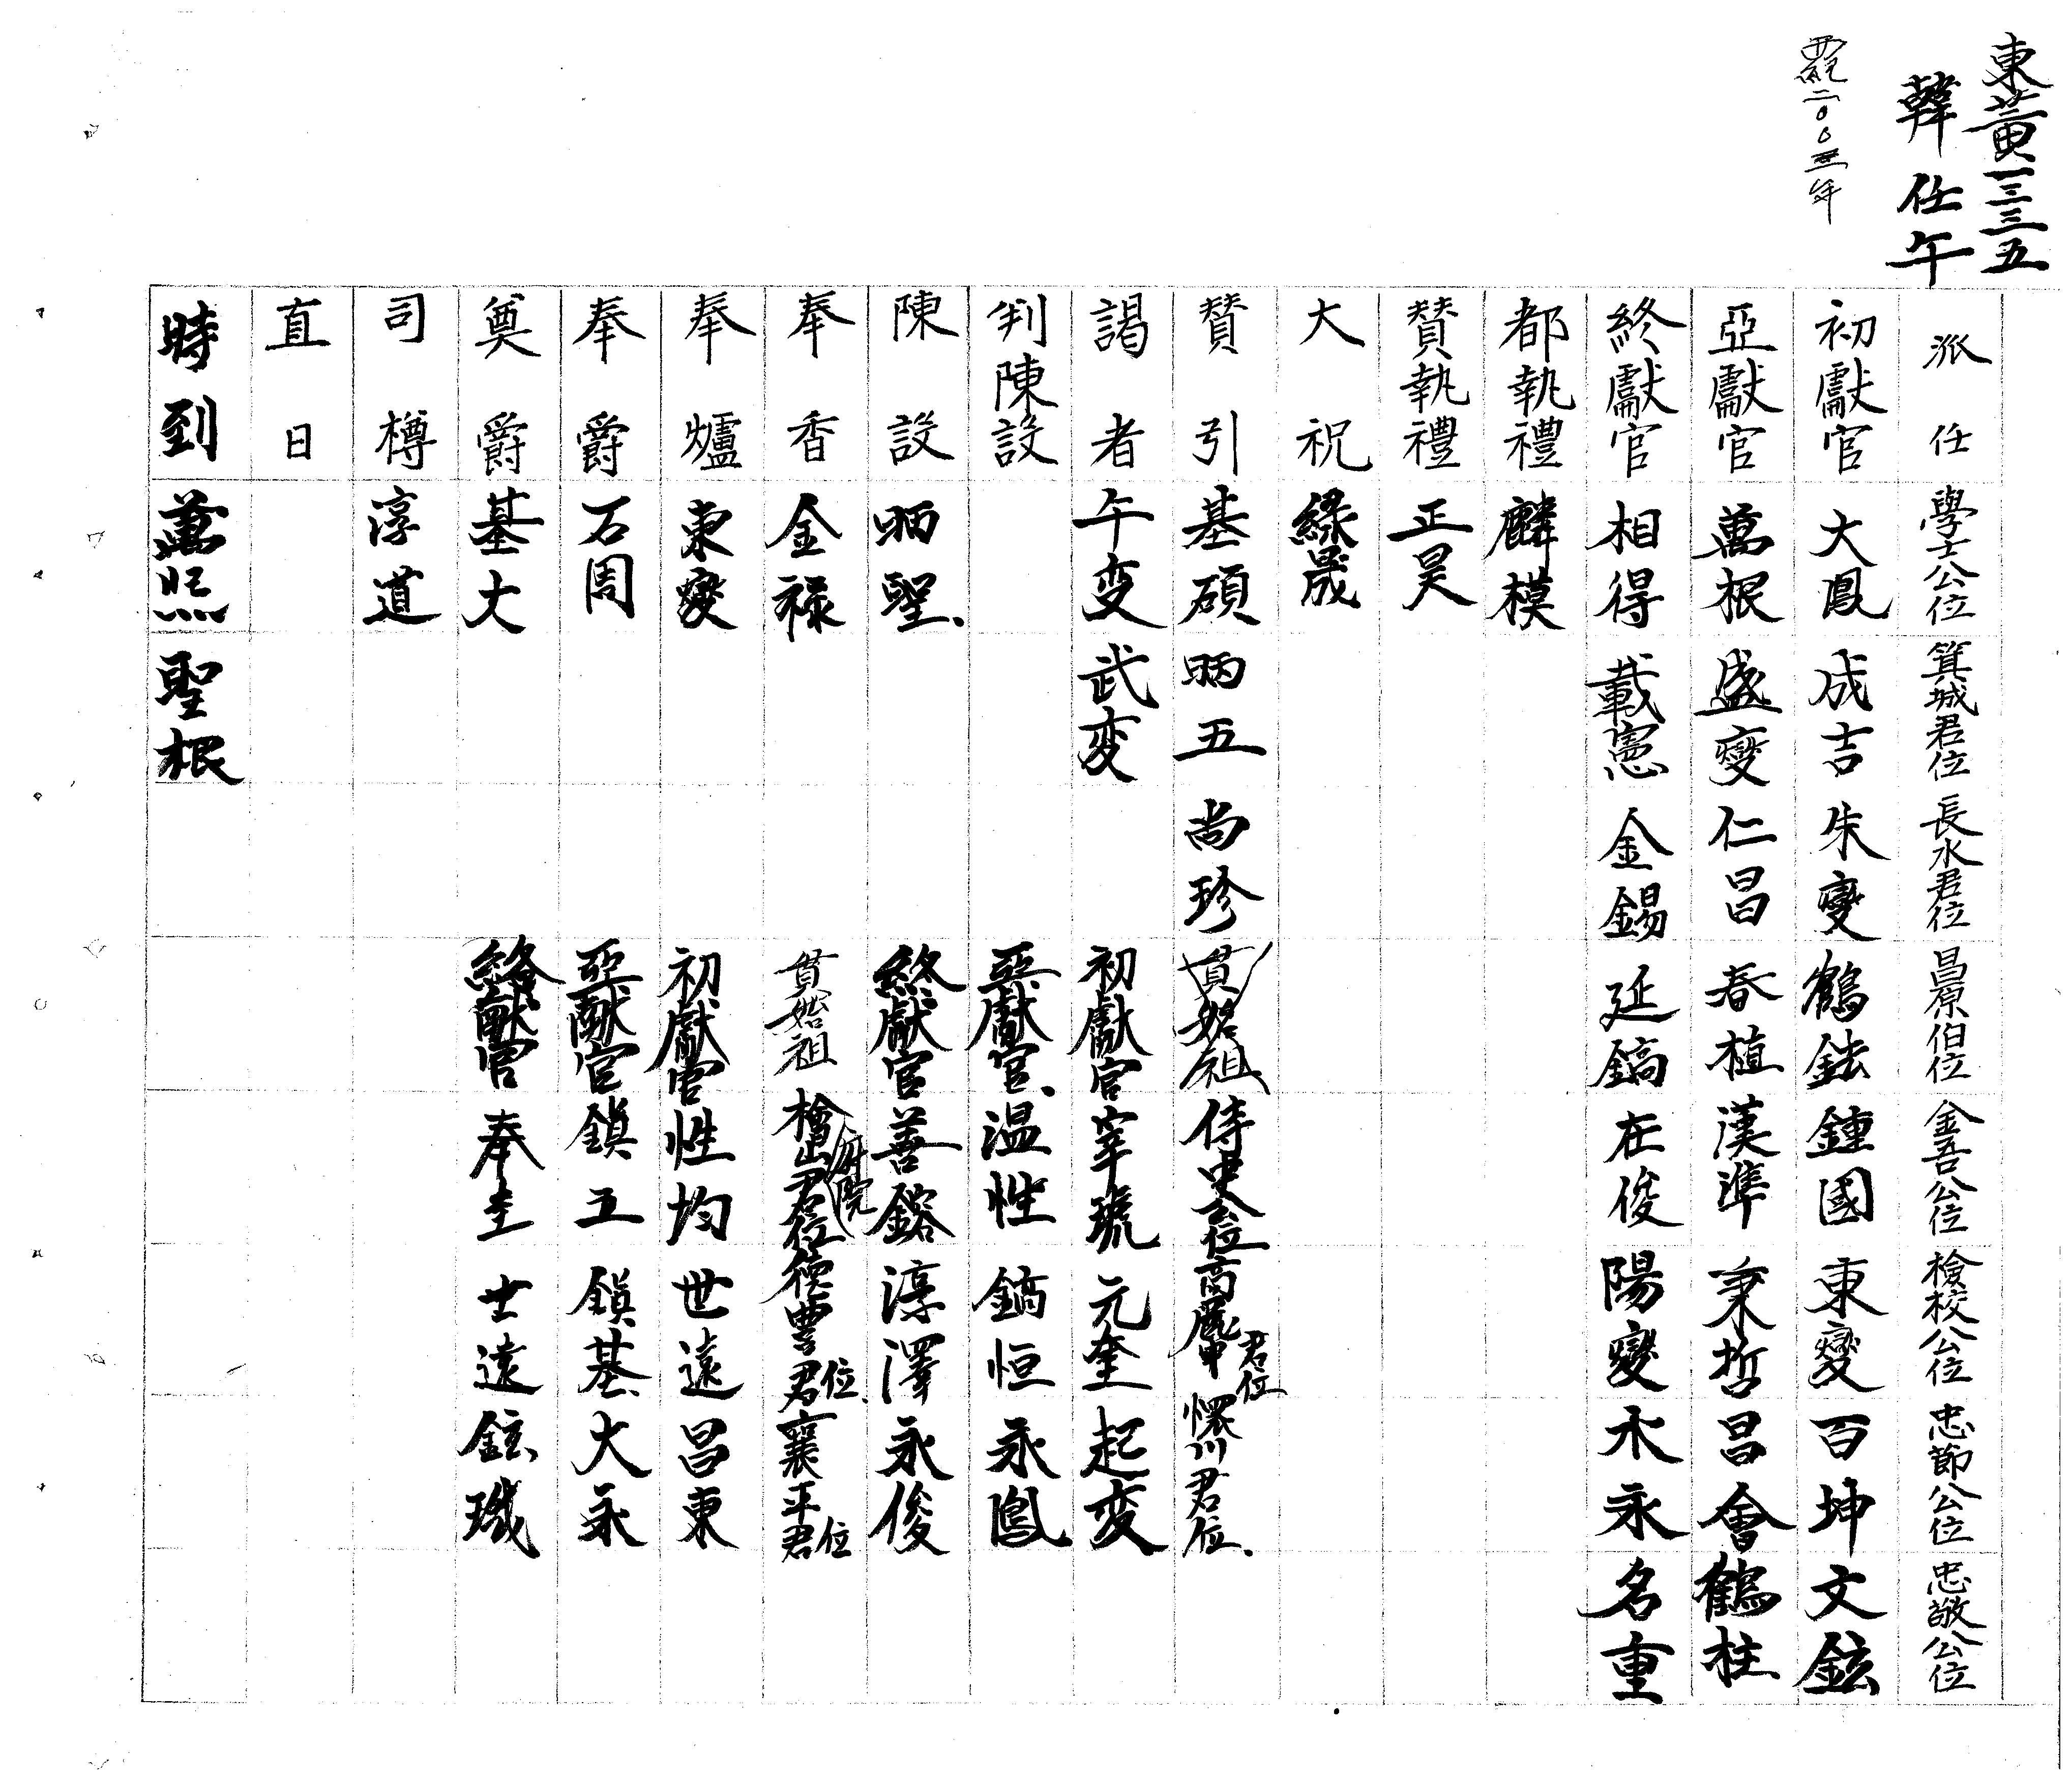 東黃一三三五
韓任午
西紀二〇〇三年
派任 學士公位 箕城君位 長水君位 昌原伯位 金吾公位 檢校公位 忠節公位 忠敬公位
初獻官 大鳳 成吉 朱燮 鶴鉉 鍾國 東燮 百坤 文鉉
亞獻官 萬根 盛燮 仁昌 春植 漢準 秉哲 昌會 鶴柱
終獻官 相得 載憲 金錫 延鎬 在俊 陽燮 永 名重
都執禮 麟模
贊執禮 正昊
大祝 綠晟
贊引 基碩 昞五 尚珍 貫始祖 侍中公位 君位 君位
謁者 午変 武変 初獻官 宰琥 元奎 起変
判陳設 亞獻官 温性 鎬恒 永鳳
陳設 昞聖 終獻官 善鎔 淳澤 永俊
奉香 金祿 貫始祖 檜山君位 府院 德豊君位 襄平君位
奉爐 東燮 初獻官 性均 世遠 昌東
奉爵 石周 亞献官 鎭五 鎭基 大永
奠爵 基大 終献官 奉圭 士遠 鉉璣
司樽 淳道
直日
時到 萬熙 聖根